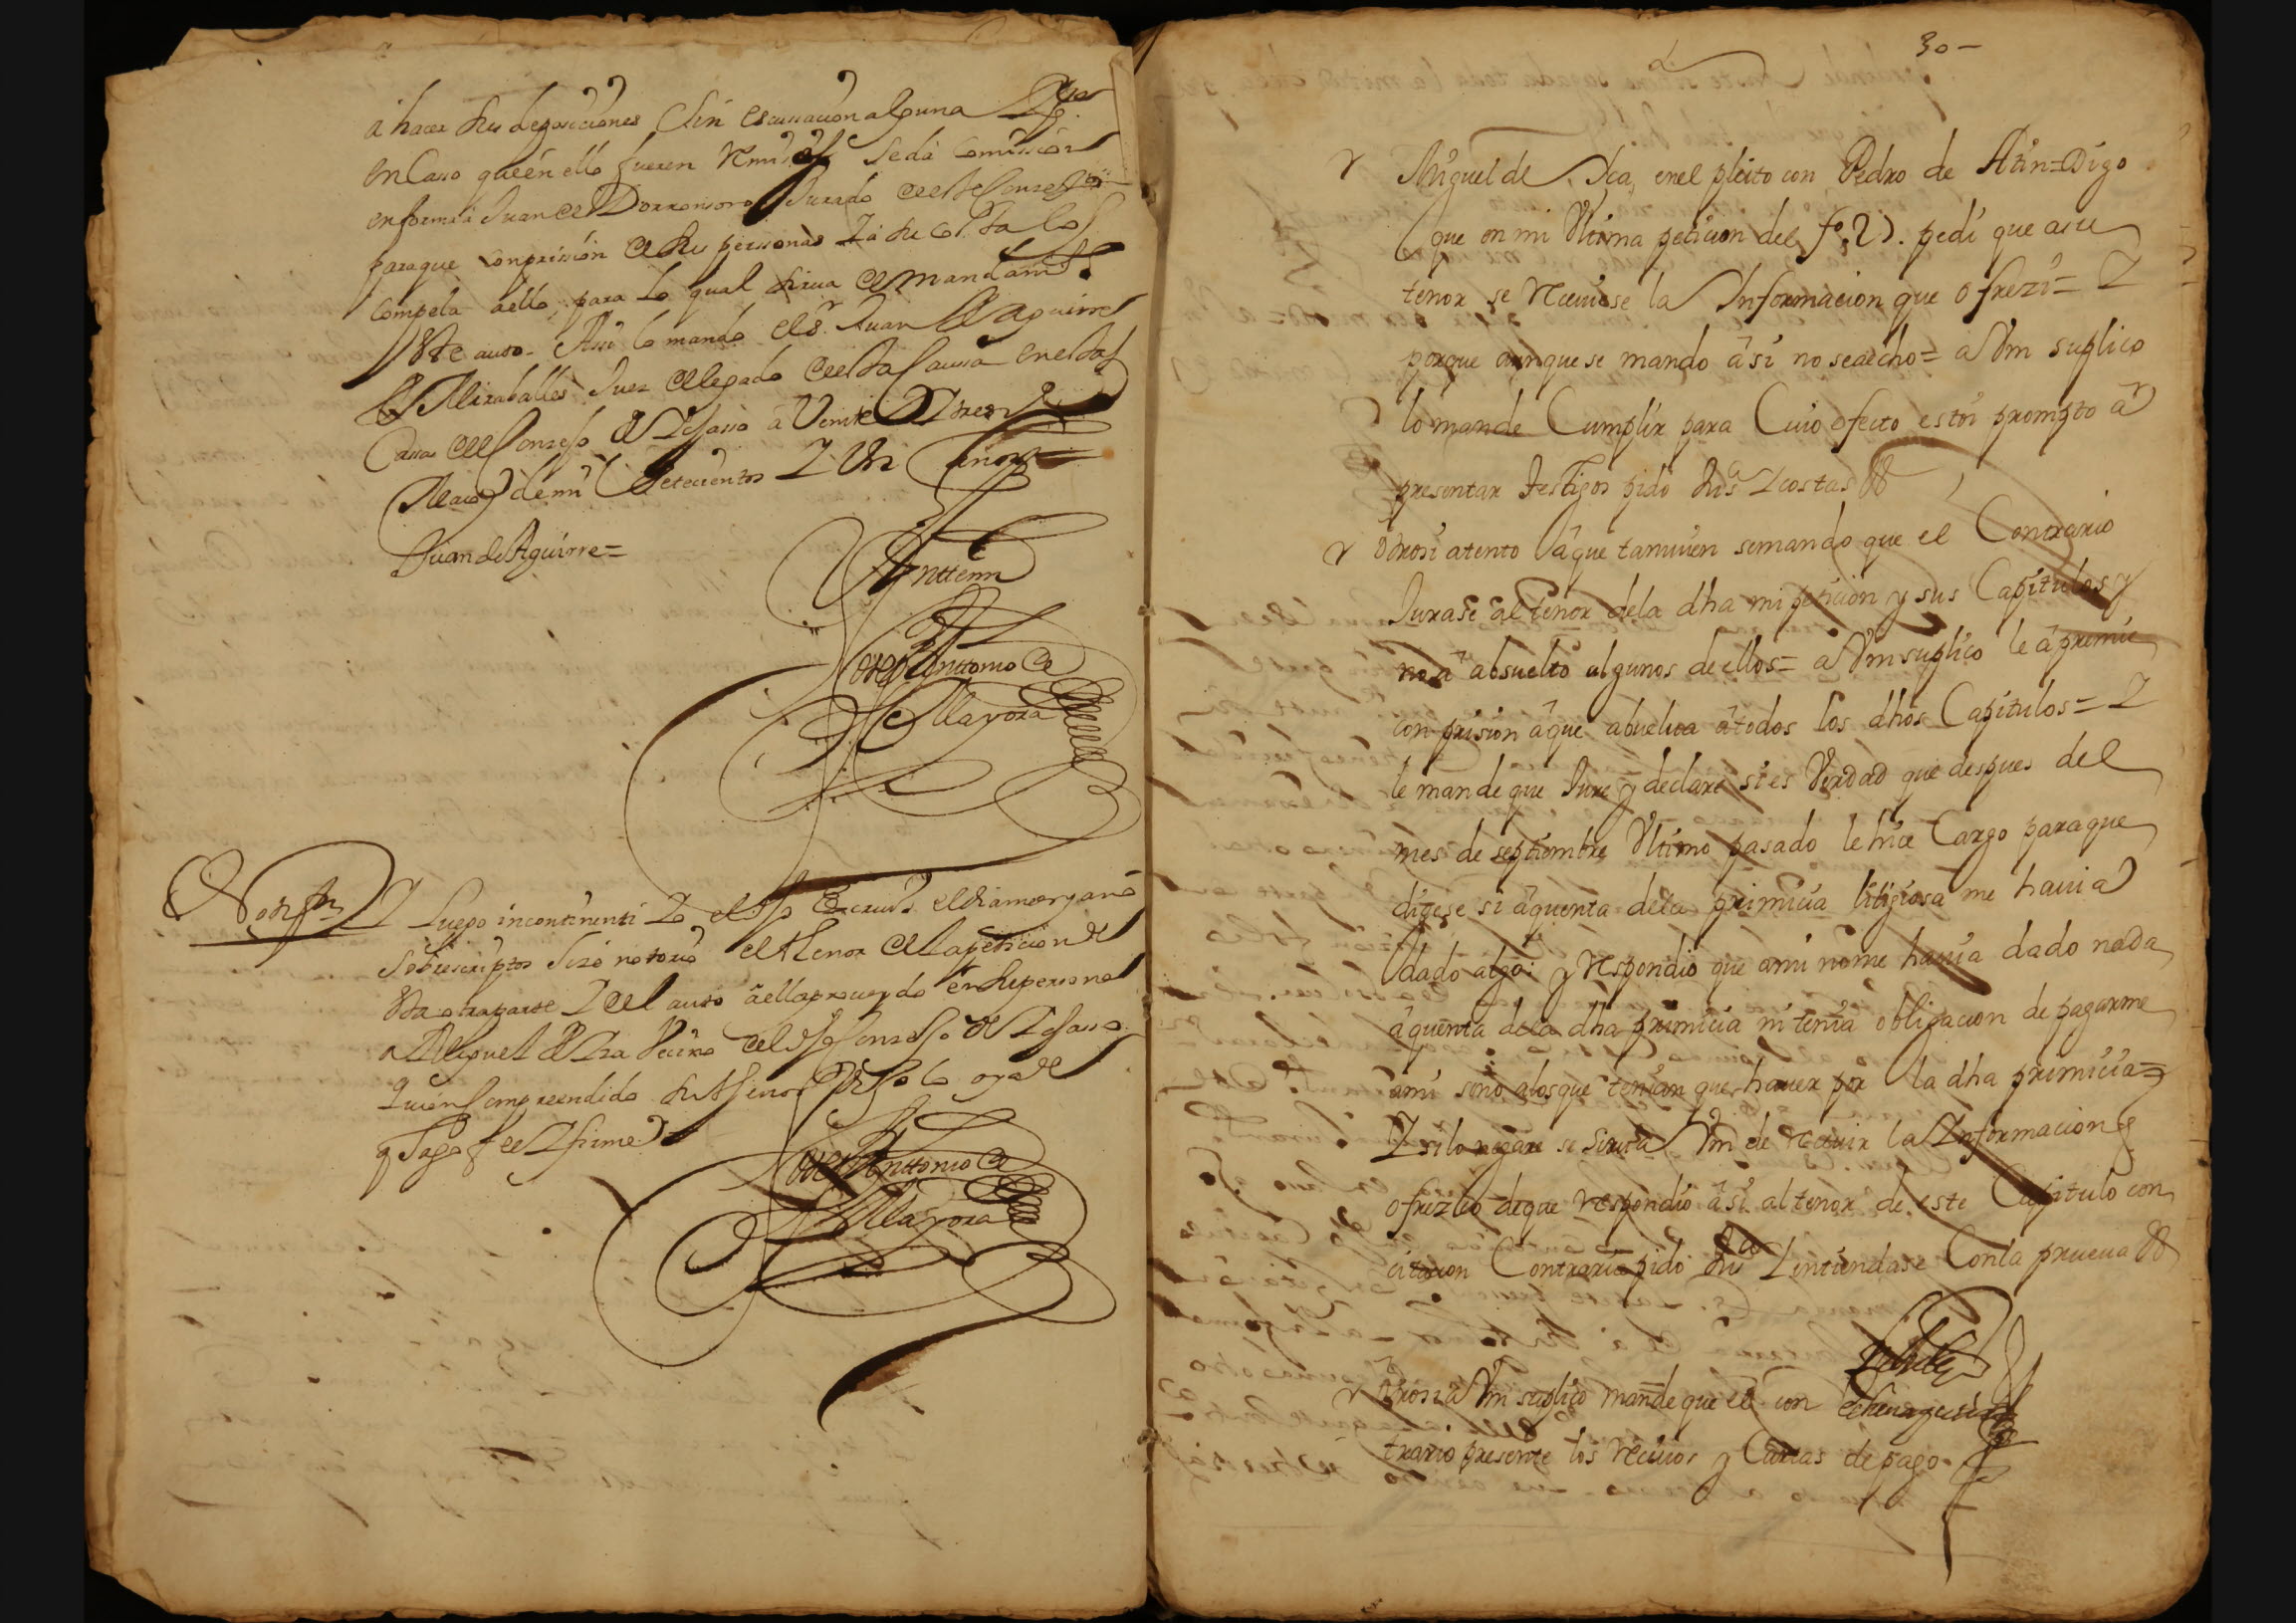 a hacer sus deposiciones sin escussacion alguna Y
en Casso que en ello fueren Remissos se dà Comission
en forma à Juan de Dorronsoro Jurado de el dho Conzejo
para que con prission de sus personas Y à su costa los
Compela a ello, para lo qual sirua de mandamto
este auto. Assi lo mando el Sr. Juan de Aguirre
de Miraballes Juez delegado de esta Caussa en estas
Cassas del Conzejo de Ydiaza a Veinte Y tres de
Marzo de mil Setecientos Y Un años
Juan de Aguirre=
Antte mi
Joseph Anttonio de
Mayora
Notifon
Y Luego incontinenti Yo el dho Escriuo. el dia mes y año
sobreescriptos hize notorio el thenor de la peticion de
esta otra parte Y del auto à ella proueydo en su persona
a Miguel de Yza Vecino del dho Conzejo de Ydiaza
quien Compreendido su thenor Dijo lo oya de
q hago fee Y firme
Joseph Anttonio de
Mayora
30-
Miguel de Yça, en el pleito con Pedro de Atin= Digo
que en mi Vltima peticion del fo. 2). pedi que a su
tenor se reciuiese la Informacion que ofrezi= Y
porque aunque se mando âsi no se a echo= a Vm suplico
lo mande Cumplir para Cuio efecto estoi prompto à
presentar testigos pido Jusa Y costas &
Otrosi atento â que tamuien se mando que el Contrario
Jurase al tenor de la dha mi peticion y sus Capitulos y
no à absuelto algunos de ellos= a Vm suplico le âpremie
con prision âque absuelua âtodos los dhos Capitulos= Y
le mande que Jure y declare si es Verdad que despues del
mes de septiembre Vltimo pasado le hice Cargo para que
digese si â quenta de la primicia litigiosa me hauia
dado algo: y respondio que a mi no me hauia dado nada
â quenta de la dha primicia ni tenia obligacion de pagarme
a mi sino a los que tenian que hauer por la dha primicia=
Y si lo negare se sirua Vm de reciuir la Informacion q
ofrezco de que respondio âsi al tenor de este Capitulo con
citacion Contraria pido Jusa Y entiendase Con la prueua &
Otrosi a Vm suplico mande que el con
trario presente los reciuos y Cartas de pago.